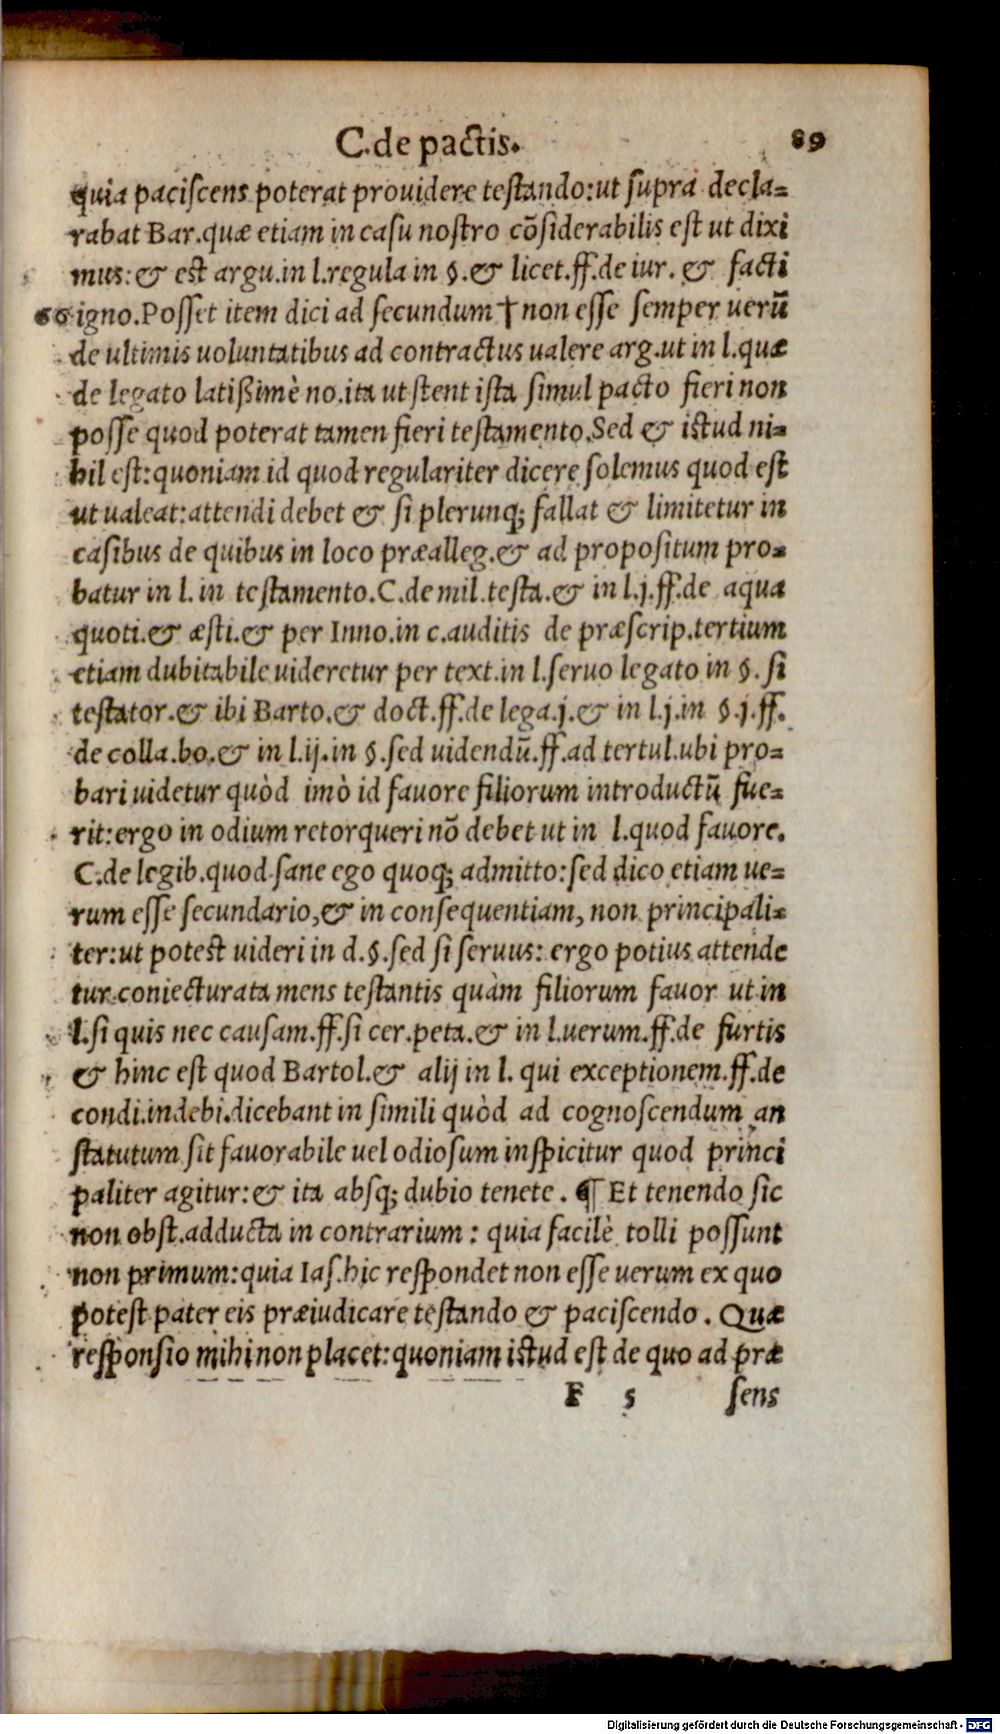 C.de pactis. 89
quia paciscens poterat prouidere testando:ut supra decla-
rabat Bar.quæ etiam in casu nostro cõsiderabilis est ut dixi
mus:& est argu.in l.regula in §.& licet.ff.de iur. & facti
66 igno.Posset item dici ad secundum † non esse semper uerũ
de ultimis uoluntatibus ad contractus ualere arg.ut in l.quæ
de legato latißimè no.ita ut stent ista simul pacto fieri non
posse quod poterat tamen fieri testamento.Sed & istud ni-
hil est:quoniam id quod regulariter dicere solemus quod est
ut ualeat:attendi debet & si plerunq; fallat & limitetur in
casibus de quibus in loco præalleg.& ad propositum pro-
batur in l. in testamento.C.de mil.testa.& in l.j.ff.de aqua
quoti.& æsti.& per Inno.in c.auditis de præscrip.tertium
etiam dubitabile uideretur per text.in l.seruo legato in §. si
testator.& ibi Barto.& doct.ff.de lega.j.& in l.j.in §.j.ff.
de colla.bo.& in l.ij.in §.sed uidendũ.ff.ad tertul.ubi pro-
bari uidetur quòd imò id fauore filiorum introductũ fue-
rit:ergo in odium retorqueri nõ debet ut in l.quod fauore.
C.de legib.quod sane ego quoq; admitto:sed dico etiam ue-
rum esse secundario,& in consequentiam, non principali-
ter:ut potest uideri in d.§.sed si seruus: ergo potius attende
tur coniecturata mens testantis quàm filiorum fauor ut in
l.si quis nec causam.ff.si cer.peta.& in l.uerum.ff.de furtis
& hinc est quod Bartol.& alij in l. qui exceptionem.ff.de
condi.indebi.dicebant in simili quòd ad cognoscendum an
statutum sit fauorabile uel odiosum inspicitur quod princi
paliter agitur:& ita absq; dubio tenete . ¶ Et tenendo sic
non obst.adducta in contrarium : quia facilè tolli possunt
non primum:quia Ias.hic respondet non esse uerum ex quo
potest pater eis præiudicare testando & paciscendo . Quæ
responsio mihi non placet:quoniam istud est de quo ad præ
F 5 sens
Digitalisierung gefördert durch die Deutsche Forschungsgemeinschaft - DFG